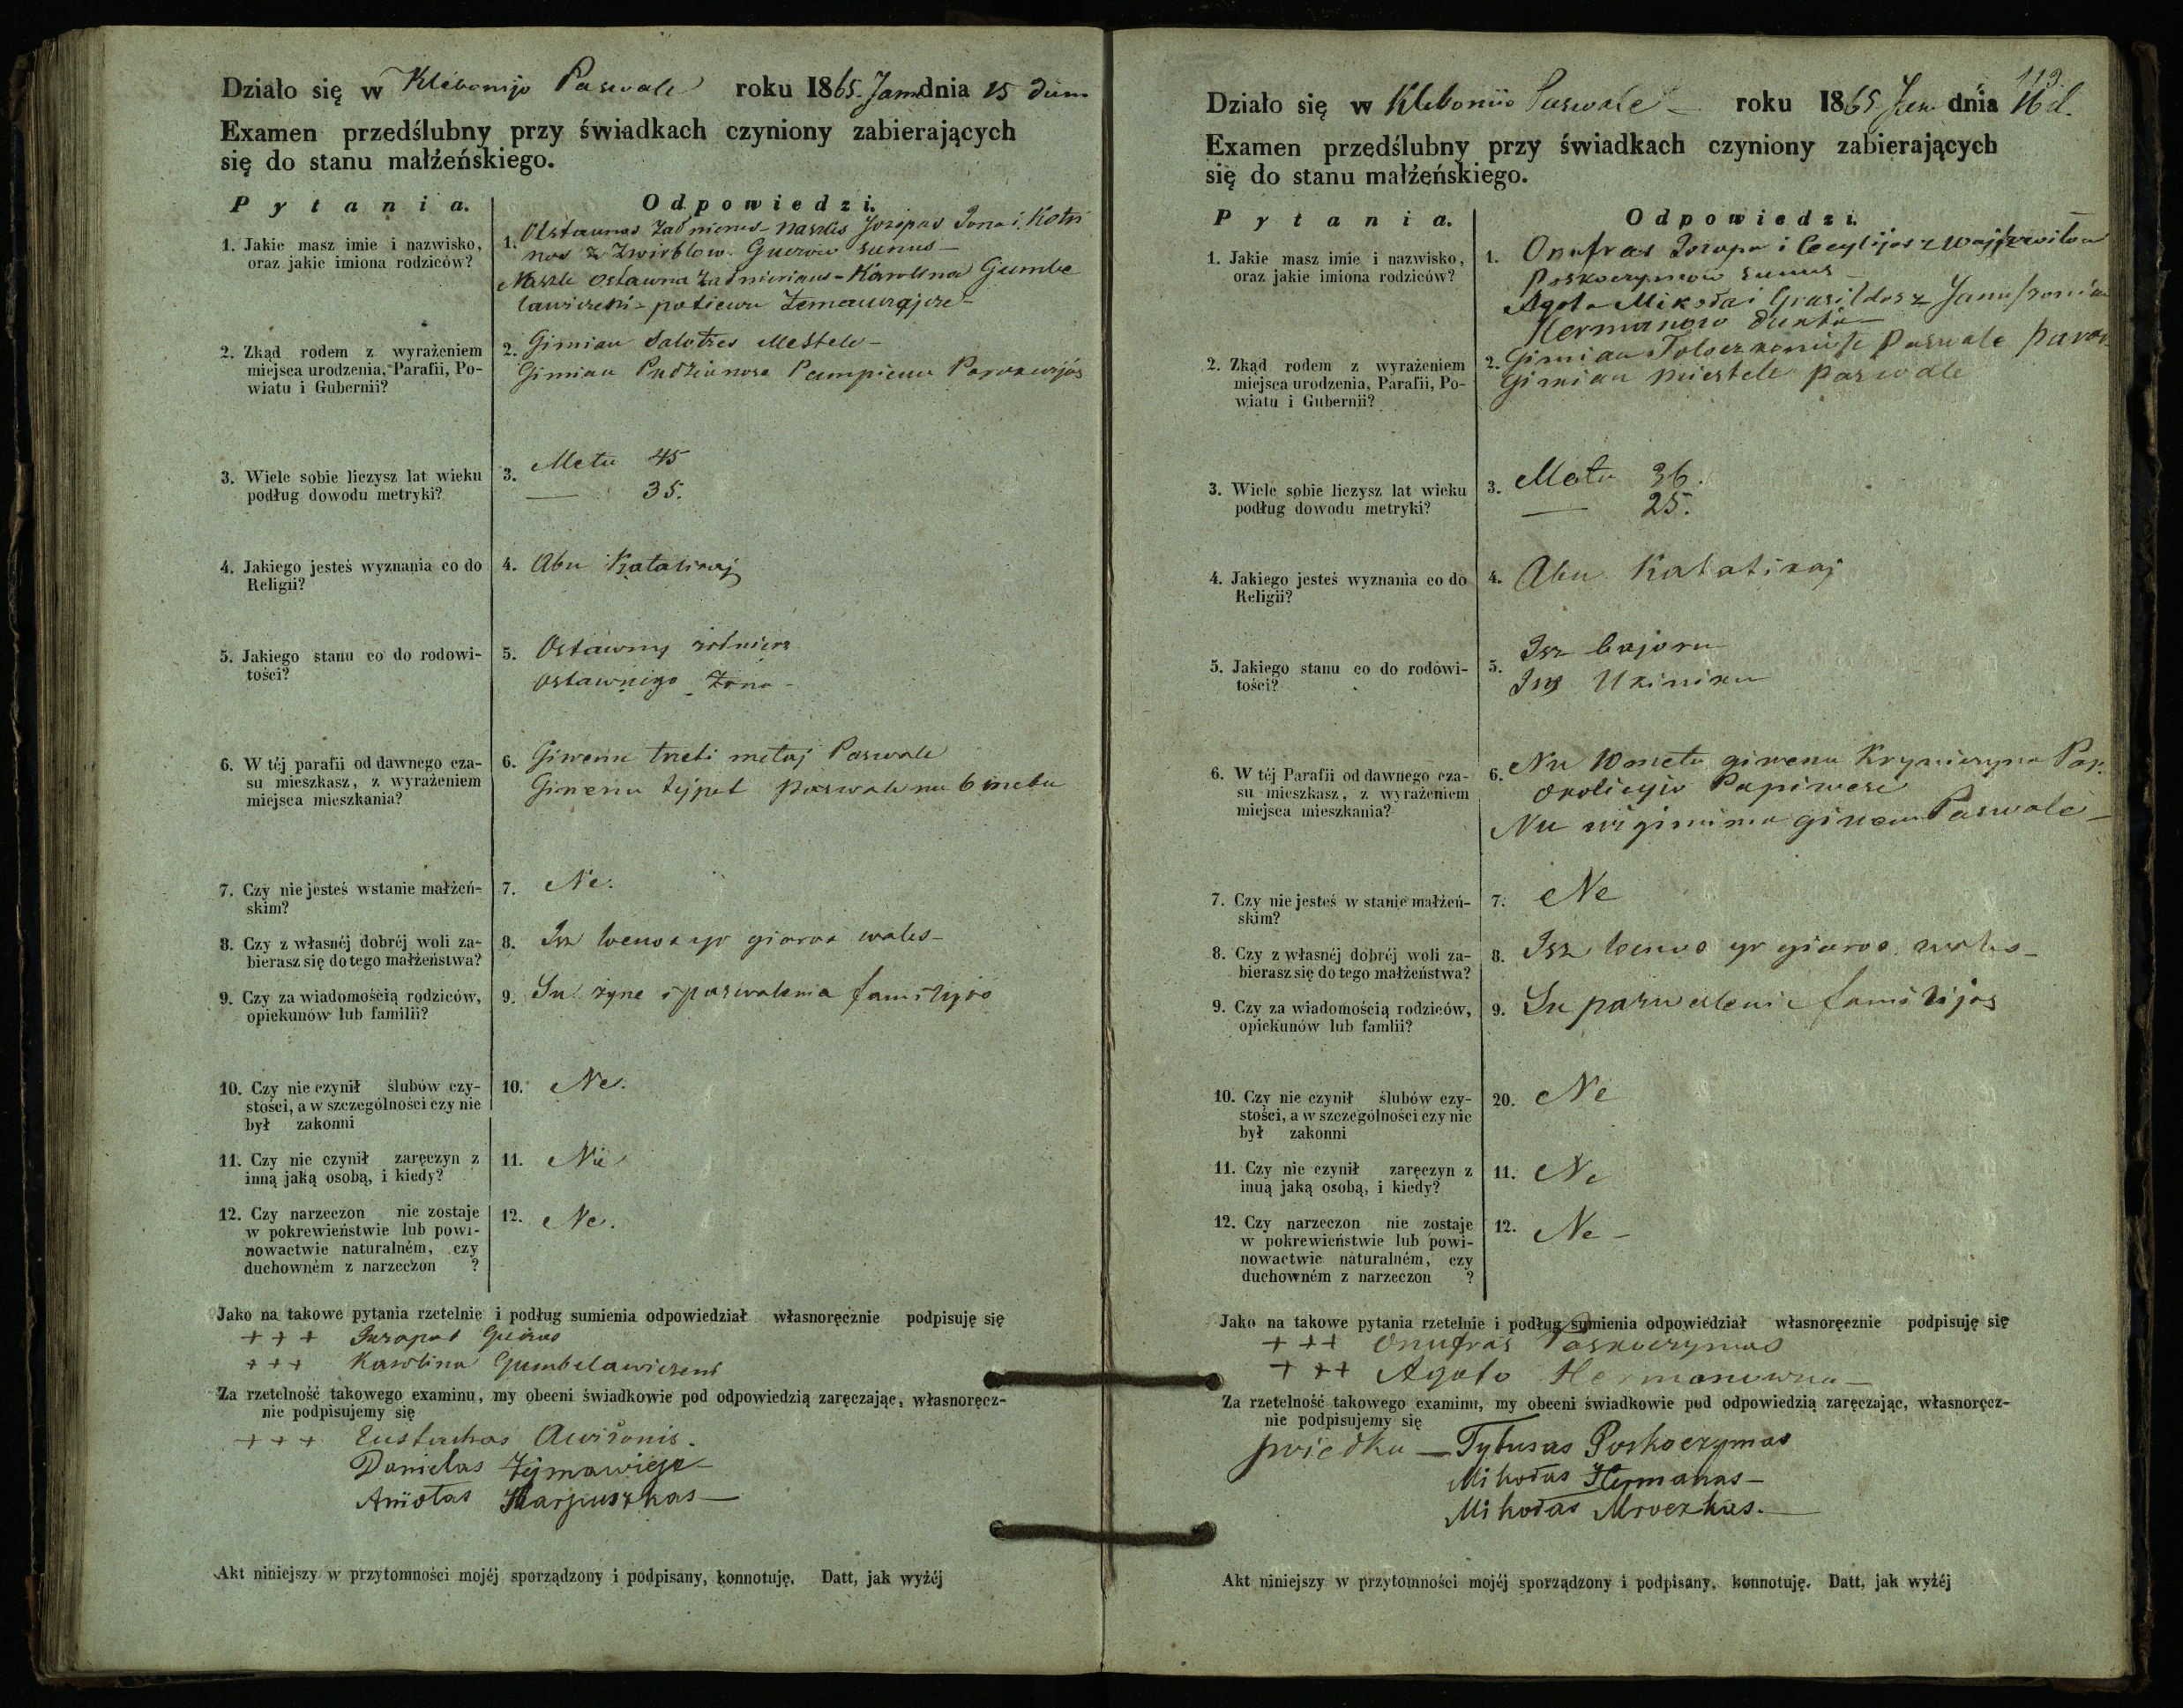 Działo się w Klebonijo Paswale roku 1865. Jan dnia 15 dum
Examen przedślubny przy świadkach czyniony zabierających
się do stanu małżeńskiego.
Pytania. Odpowiedzi.
1. Jakie masz imie i nazwisko,
oraz jakie imiona rodziców?
1. naszlis Jozapas Jona i Kotri
nos z Zwirblow. sunus –
Naszle Ostawna Karolina Gumbe
lawiczeni –
2. Zkąd rodem z wyrażeniem
miejsca urodzenia, Parafii, Po-
wiatu i Gubernii?
2. Gimiau Saloties Mestele –
Gimiau Pudzianose Pampienu
3. Wiele sobie liczysz lat wieku
podług dowodu metryki?
3. Metu 45
— 35.
4. Jakiego jesteś wyznania co do
Religii?
4. Abu Katalikaj
5. Jakiego stanu co do rodowi-
tości?
5. Ostawny żołnierz
ostawnego żona –
6. W téj parafii od dawnego cza-
su mieszkasz, z wyrażeniem
miejsca mieszkania?
6. Giwenu treti metaj Paswale
Giwenu tejpat paswale nu 6 metu
7. Czy nie jesteś wstanie małżeń-
skim?
7. Ne.
8. Czy z własnéj dobréj woli za-
bierasz się do tego małżeństwa?
8. Isz yr gieros wales –
9. Czy za wiadomością rodziców,
opiekunów lub familii?
9. Su żyne i paswalenia familijos
10. Czy nie czynił ślubów czy-
stości, a w szczególności czy nie
był zakonni
10. Ne.
11. Czy nie czynił zaręczyn z
inną jaką osobą, i kiedy?
11. Ne
12. Czy narzeczon nie zostaje
w pokrewieństwie lub powi-
nowactwie naturalném, czy
duchowném z narzeczon ?
12. Ne.
Jako na takowe pytania rzetelnie i podług sumienia odpowiedział własnoręcznie podpisuję się
+ + + Juzapas
+ + + Karolina Gumbelawiczeni
Za rzetelność takowego examinu, my obecni świadkowie pod odpowiedzią zaręczając, własnoręcz-
nie podpisujemy się
+ + + Eustachas Awiżonis.
Danielas
Aniołas Karpuszkas —
Akt niniejszy w przytomności mojéj sporządzony i podpisany, konnotuję. Datt, jak wyżéj
113.
Działo się w Klebonijo Paswale – roku 1865 Jan dnia 16 d.
Examen przedślubny przy świadkach czyniony zabierających
się do stanu małżeńskiego.
Pytania. Odpowiedzi.
1. Jakie masz imie i nazwisko,
oraz jakie imiona rodziców?
1. Onufras Jozapa i Cecylijos z
Poskoczymow sunus –
Agota Mikołai i Grasildos z
Hermanow dukte –
2. Zkąd rodem z wyrażeniem
miejsca urodzenia, Parafii, Po-
wiatu i Gubernii?
2. Gimiau Paswale
Gimiau miestele paswale
3. Wiele sobie liczysz lat wieku
podług dowodu metryki?
3. Metu 36.
— 25.
4. Jakiego jesteś wyznania co do
Religii?
4. Abu Katalikaj
5. Jakiego stanu co do rodówi-
tości?
5. Isz bajoru
Isz Ukiniku
6. W téj Parafii od dawnego cza-
su mieszkasz, z wyrażeniem
miejsca mieszkania?
6. Nu 10 metu giwenu Par.
okolicyjo Papiwese
Nu użgimimo giwenu Paswale –
7. Czy nie jesteś w stanie małżeń-
skim?
7. Ne
8. Czy z własnéj dobréj woli za-
bierasz się do tego małżeństwa?
8. Isz yr gieros wales –
9. Czy za wiadomością rodziców,
opiekunów lub famlii?
9. Su paswaleni familijos
10. Czy nie czynił ślubów czy-
stości, a w szczególności czy nie
był zakonni
20. Ne
11. Czy nie czynił zaręczyn z
inuą jaką osobą, i kiedy?
11. Ne
12. Czy narzeczon nie zostaje
w pokrewieństwie lub powi-
nowactwie naturalném, czy
duchowném z narzeczon ?
12. Ne –
Jako na takowe pytania rzetelnie i podług sumienia odpowiedział własnoręcznie podpisuję się
+ + + Onufras Poskoczymas
+ + + Agota Hermanowna –
Za rzetelność takowego examinu, my obecni świadkowie pod odpowiedzią zaręczając, własnoręcz-
nie podpisujemy się
— Tytusas Poskoczymas
Mikołas Hermanas —
Mikołas Mroczkas. —
Akt niniejszy w przytomności mojéj sporządzony i podpisany, konnotuję. Datt, jak wyżéj